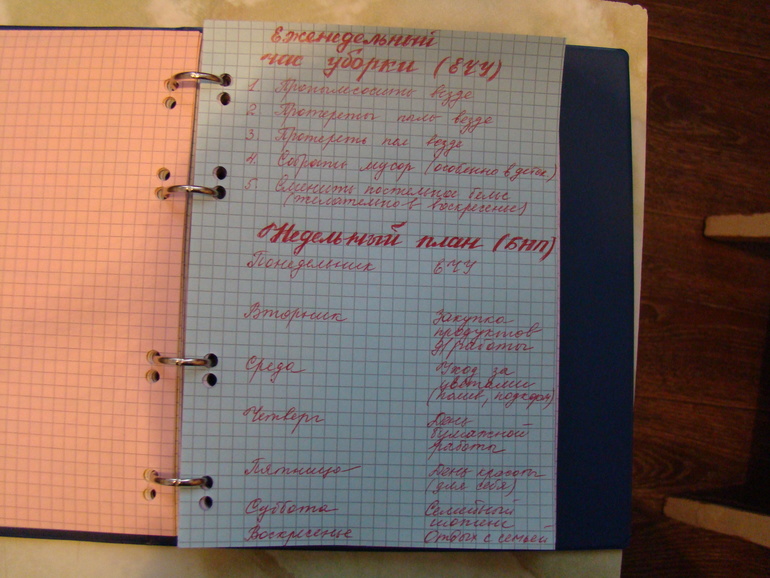 Еженедельный
час уборки (ЕЧУ)
1 Пропылесосить везде
2 Протереть пыль везде
3 Протереть пол везде
4. Собрать мусор (особенно в детск)
5. Сменить постельное белье
(желательно в воскресение)
Недельный план (БНП)
Понедельник ЕЧУ
Вторник Закупка
продуктов
д/работы
Среда Уход за
цветами
(полив, подкорм)
Четверг День
бумажной
работы
Пятница День красоты
(для себя)
Суббота Семейный
шопинг
Воскресенье Отдых с семьей